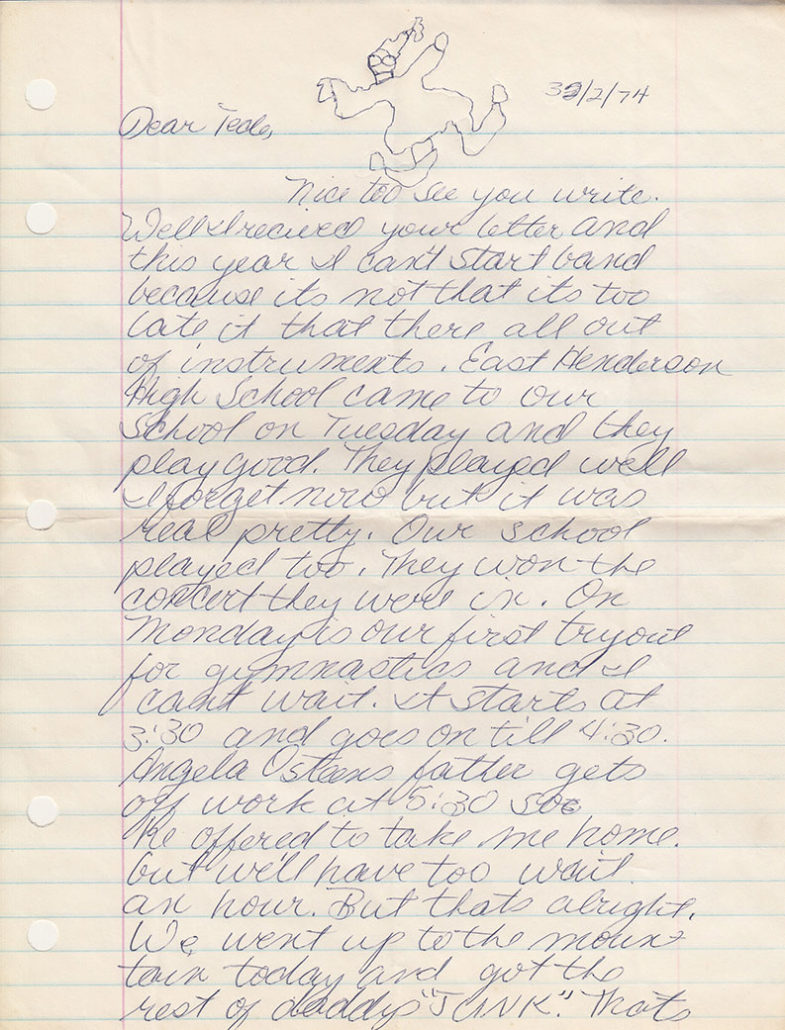 3/2/74
Dear Tede,
Nice too see you write.
Well I recieved your letter and
this year I can't start band
because its not that its too
late it that there all out
of instruments. East Henderson
High School came to our
School on Tuesday and they
play good. They played well
I forget now but it was
real pretty. Our school
played too. They won the
concert they were in. On
Monday is our first tryout
for gymnastics and I
can't wait. It starts at
3:30 and goes on till 4:30.
Angela Osteens father gets
off work at 5:30 so
he offered to take me home.
but we'll have too wait
an hour. But thats alright.
We went up to the moun-
tain today and got the
rest of daddys "JUNK." Thats